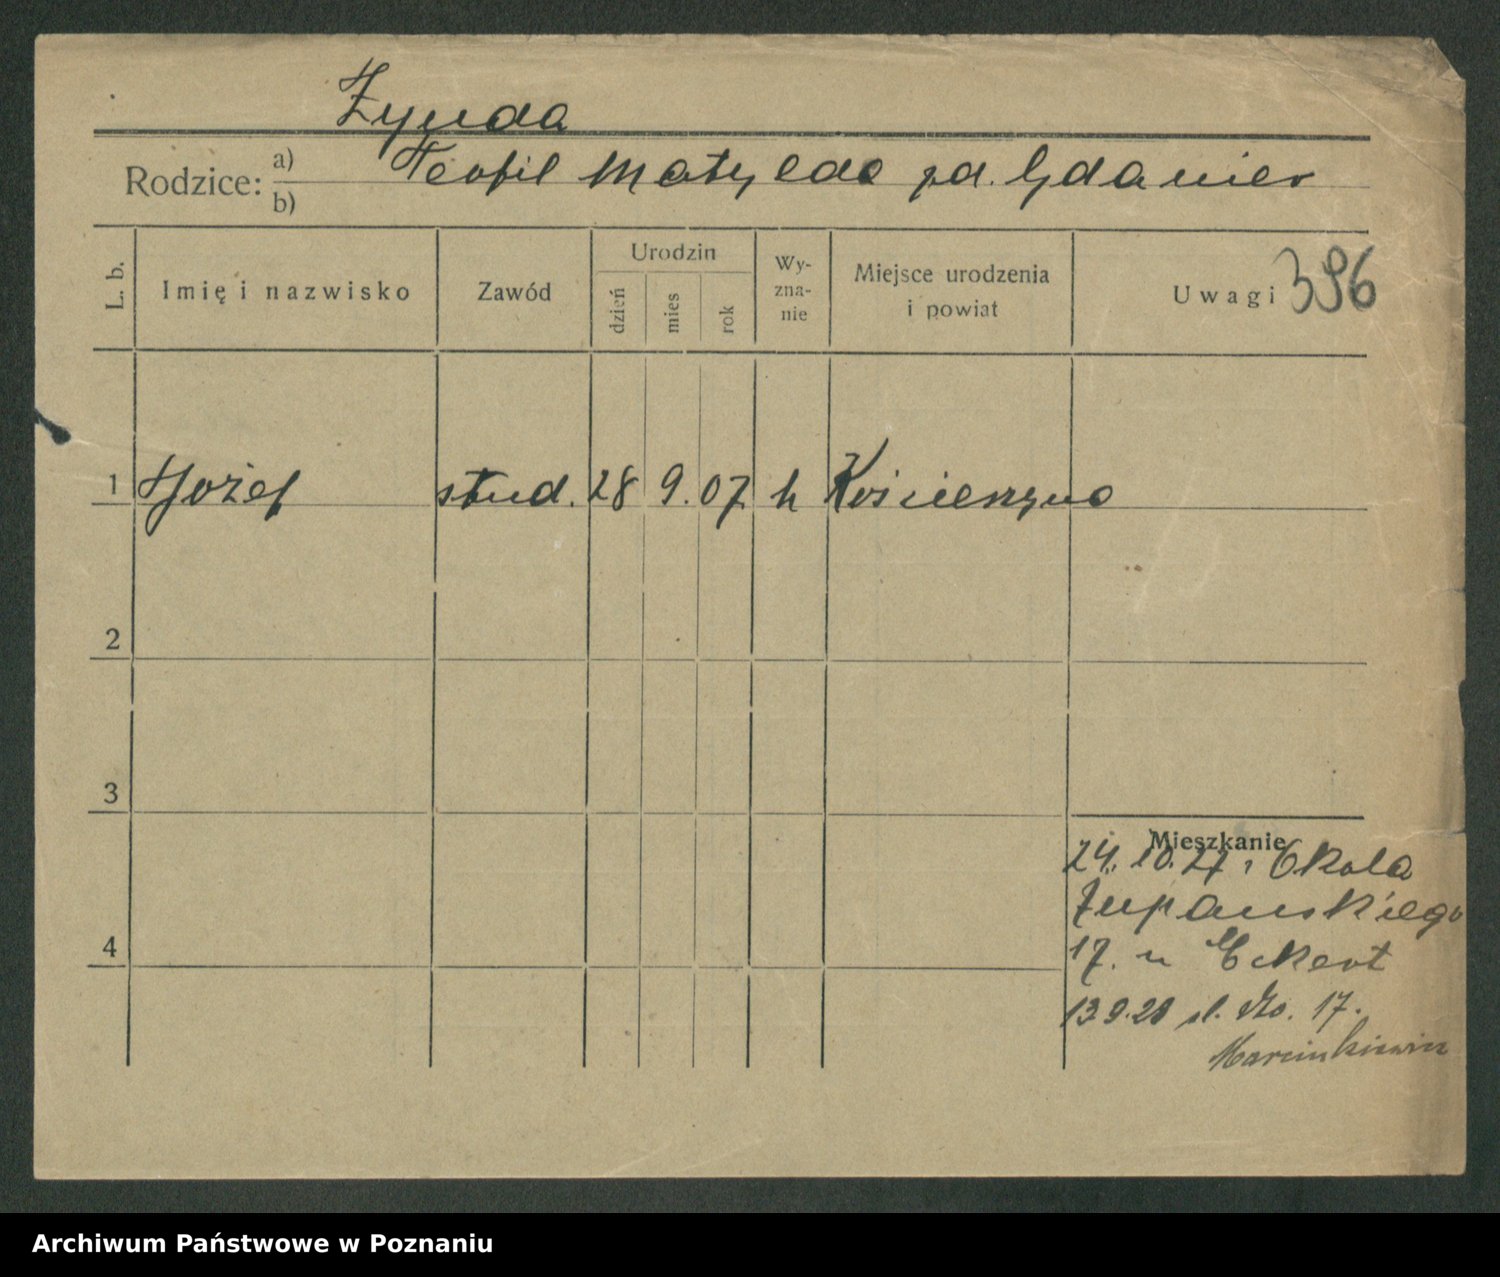 Zynda
Rodzice: a) Teofil Matylda zd. Gdaniec
b)
L. b. Imię i nazwisko Zawód Urodzin dzień mies rok Wyznanie Miejsce urodzenia i powiat Uwagi 396
1 Józef stud. 28 9. 07 k Kościerzyna
2
3
Mieszkanie
24. 10. 27 z Okola
Żupańskiego
4
17. u Eckert
13.9.28 17.
Marcinkiewicz
Archiwum Państwowe w Poznaniu